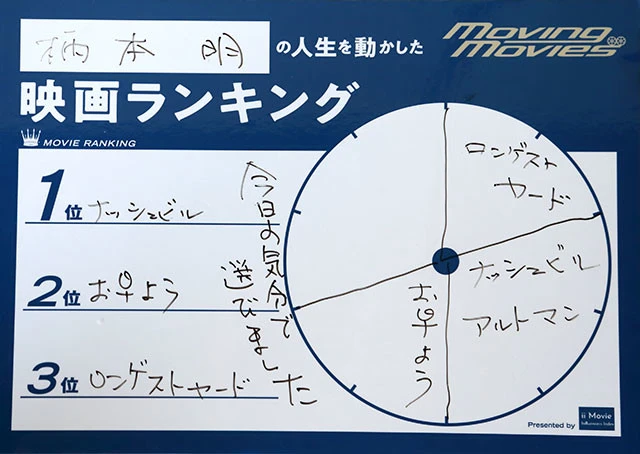 柄本 明 の人生を動かした
Moving Movies
映画ランキング
MOVIE RANKING
1位 ナッシュビル
2位 お早よう
3位 ロンゲストヤード
今日のお気分で
選びました
ロンゲスト
ヤード
ナッシュビル
アルトマン
お早よう
Presented by ii Movie